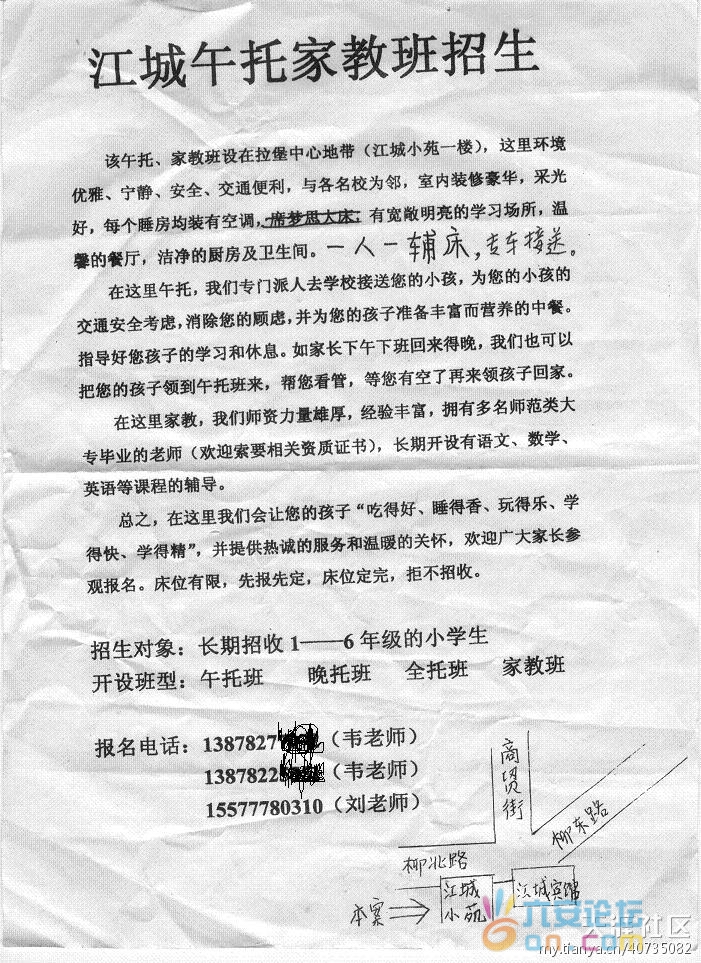 江城午托家教班招生
该午托、家教班设在拉堡中心地带（江城小苑一楼），这里环境
优雅、宁静、安全、交通便利，与各名校为邻，室内装修豪华，采光
好，每个睡房均装有空调，席梦思大床，有宽敞明亮的学习场所，温
馨的餐厅，洁净的厨房及卫生间。一人一辅床，专车接送。
在这里午托，我们专门派人去学校接送您的小孩，为您的小孩的
交通安全考虑，消除您的顾虑，并为您的孩子准备丰富而营养的中餐。
指导好您孩子的学习和休息。如家长下午下班回来得晚，我们也可以
把您的孩子领到午托班来，帮您看管，等您有空了再来领孩子回家。
在这里家教，我们师资力量雄厚，经验丰富，拥有多名师范类大
专毕业的老师（欢迎索要相关资质证书），长期开设有语文、数学、
英语等课程的辅导。
总之，在这里我们会让您的孩子“吃得好、睡得香、玩得乐、学
得快、学得精”，并提供热诚的服务和温暖的关怀，欢迎广大家长参
观报名。床位有限，先报先定，床位定完，拒不招收。
招生对象：长期招收1——6年级的小学生
开设班型：午托班 晚托班 全托班 家教班
报名电话：13878277（韦老师）
1387822（韦老师）
15577780310（刘老师）
商贸街
柳东路
柳北路
江城小苑
江城宾馆
本案
六安论坛
on.com
天涯社区
my.tianya.cn/40735082